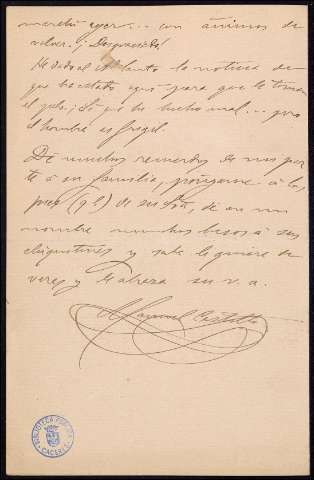 marchó ayer... con ánimos de
volver. ¡Desgraciado!
He dado al la noticia de
que ha estado aquí para que le tomen
el pelo; sé que he hecho mal... pero
el hombre es fragil.
Dé muchos recuerdos de mi par
te á su familia, póngame á los
pies (q b) de su Sra, dé en mi
nombre muchos besos á sus
chiquitines y sabe le quiere de
veras y le abraza su v. a.
Manuel Castillo
BIBLIOTECA PUBLICA
CACERES